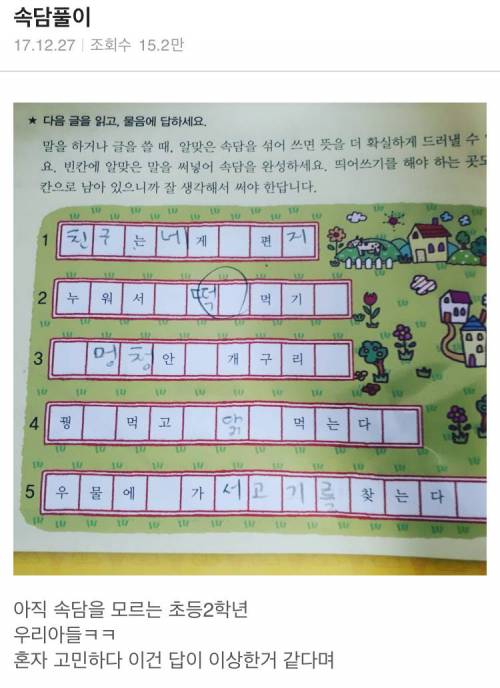 속담풀이
17.12.27 | 조회수 15.2만
★ 다음 글을 읽고, 물음에 답하세요.
말을 하거나 글을 쓸 때, 알맞은 속담을 섞어 쓰면 뜻을 더 확실하게 드러낼 수
요. 빈칸에 알맞은 말을 써넣어 속담을 완성하세요. 띄어쓰기를 해야 하는 곳도
칸으로 남아 있으니까 잘 생각해서 써야 한답니다.
1 친구는네게 편지
2 누워서 떡 먹기
3 멍청안 개구리
4 꿩 먹고 닭 먹는다
5 우물에 가서고기를찾는다
아직 속담을 모르는 초등2학년
우리아들ㅋㅋ
혼자 고민하다 이건 답이 이상한거 같다며